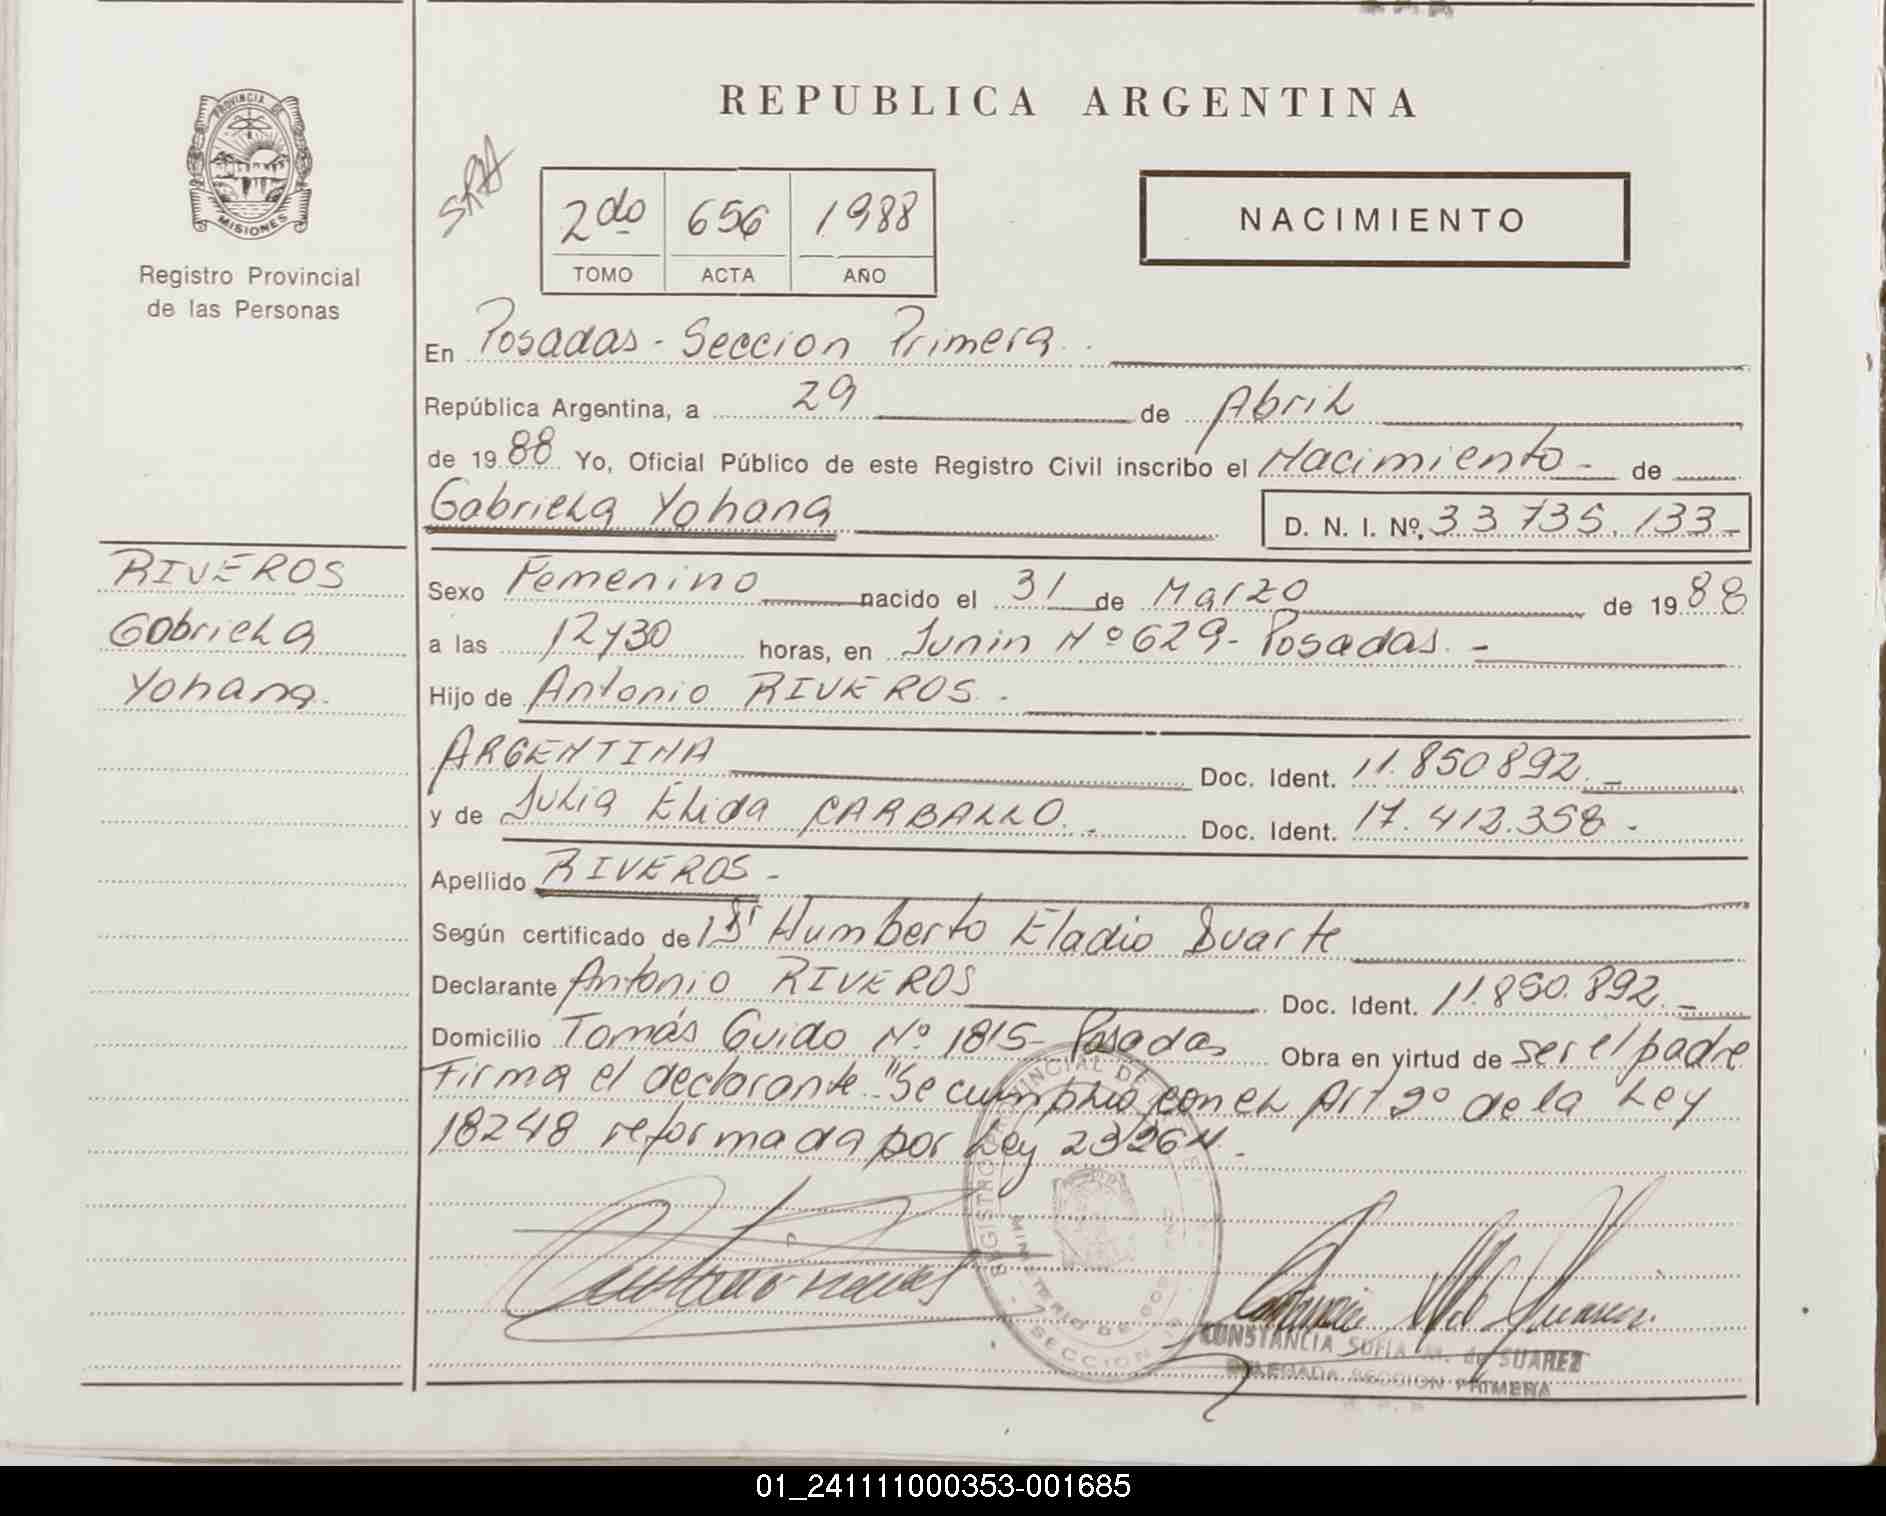 PROVINCIA DE
MISIONES
Registro Provincial
de las Personas
RIVEROS
Gabriela
Yohana.
REPUBLICA ARGENTINA
2do 656 1988
TOMO ACTA AÑO
NACIMIENTO
En Posadas - Seccion Primera.
República Argentina, a 29 de Abril
de 1988 Yo, Oficial Público de este Registro Civil inscribo el Nacimiento - de
Gabriela Yohana
D. N. I. Nº, 33.735.133-
Sexo Femenino nacido el 31 de Marzo de 1988
a las 12y30 horas, en Junin Nº 629- Posadas. -
Hijo de Antonio RIVEROS.
ARGENTINA Doc. Ident. 11.850892. -
y de Julia Elida CARBALLO. - Doc. Ident. 17.412.358 -
Apellido RIVEROS -
Según certificado de Dr Humberto Eladio Duarte
Declarante Antonio RIVEROS Doc. Ident. 11.850.892. -
Domicilio Tomás Guido Nº 1815- Posadas Obra en virtud de ser el padre
Firma el declarante "Se cumplio con el Art 2º de la Ley
18248 reformada por Ley 23264.
REGISTRO PROVINCIAL DE
MINISTERIO DE GOB
SECCION
CONSTANCIA SOFIA M. de SUAREZ
DELEGADA SECCION PRIMERA
01_241111000353-001685